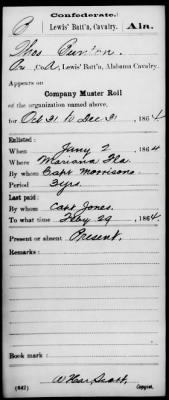 Confederate.
C Lewis' Batt'n, Cavalry. Ala.
Thos
Co. A, Lewis' Batt'n, Alabama Cavalry.
Appears on
Company Muster Roll
of the organization named above,
for Oct 31 to Dec 31, 1864
Enlisted:
When Jany 2, 1864
Where Mariana Fla.
By whom Capt Morrisons
Period 3 yrs.
Last paid:
By whom Capt Jones.
To what time Feby 29, 1864.
Present or absent Present.
Remarks:
Book mark:
(642) Copyist.